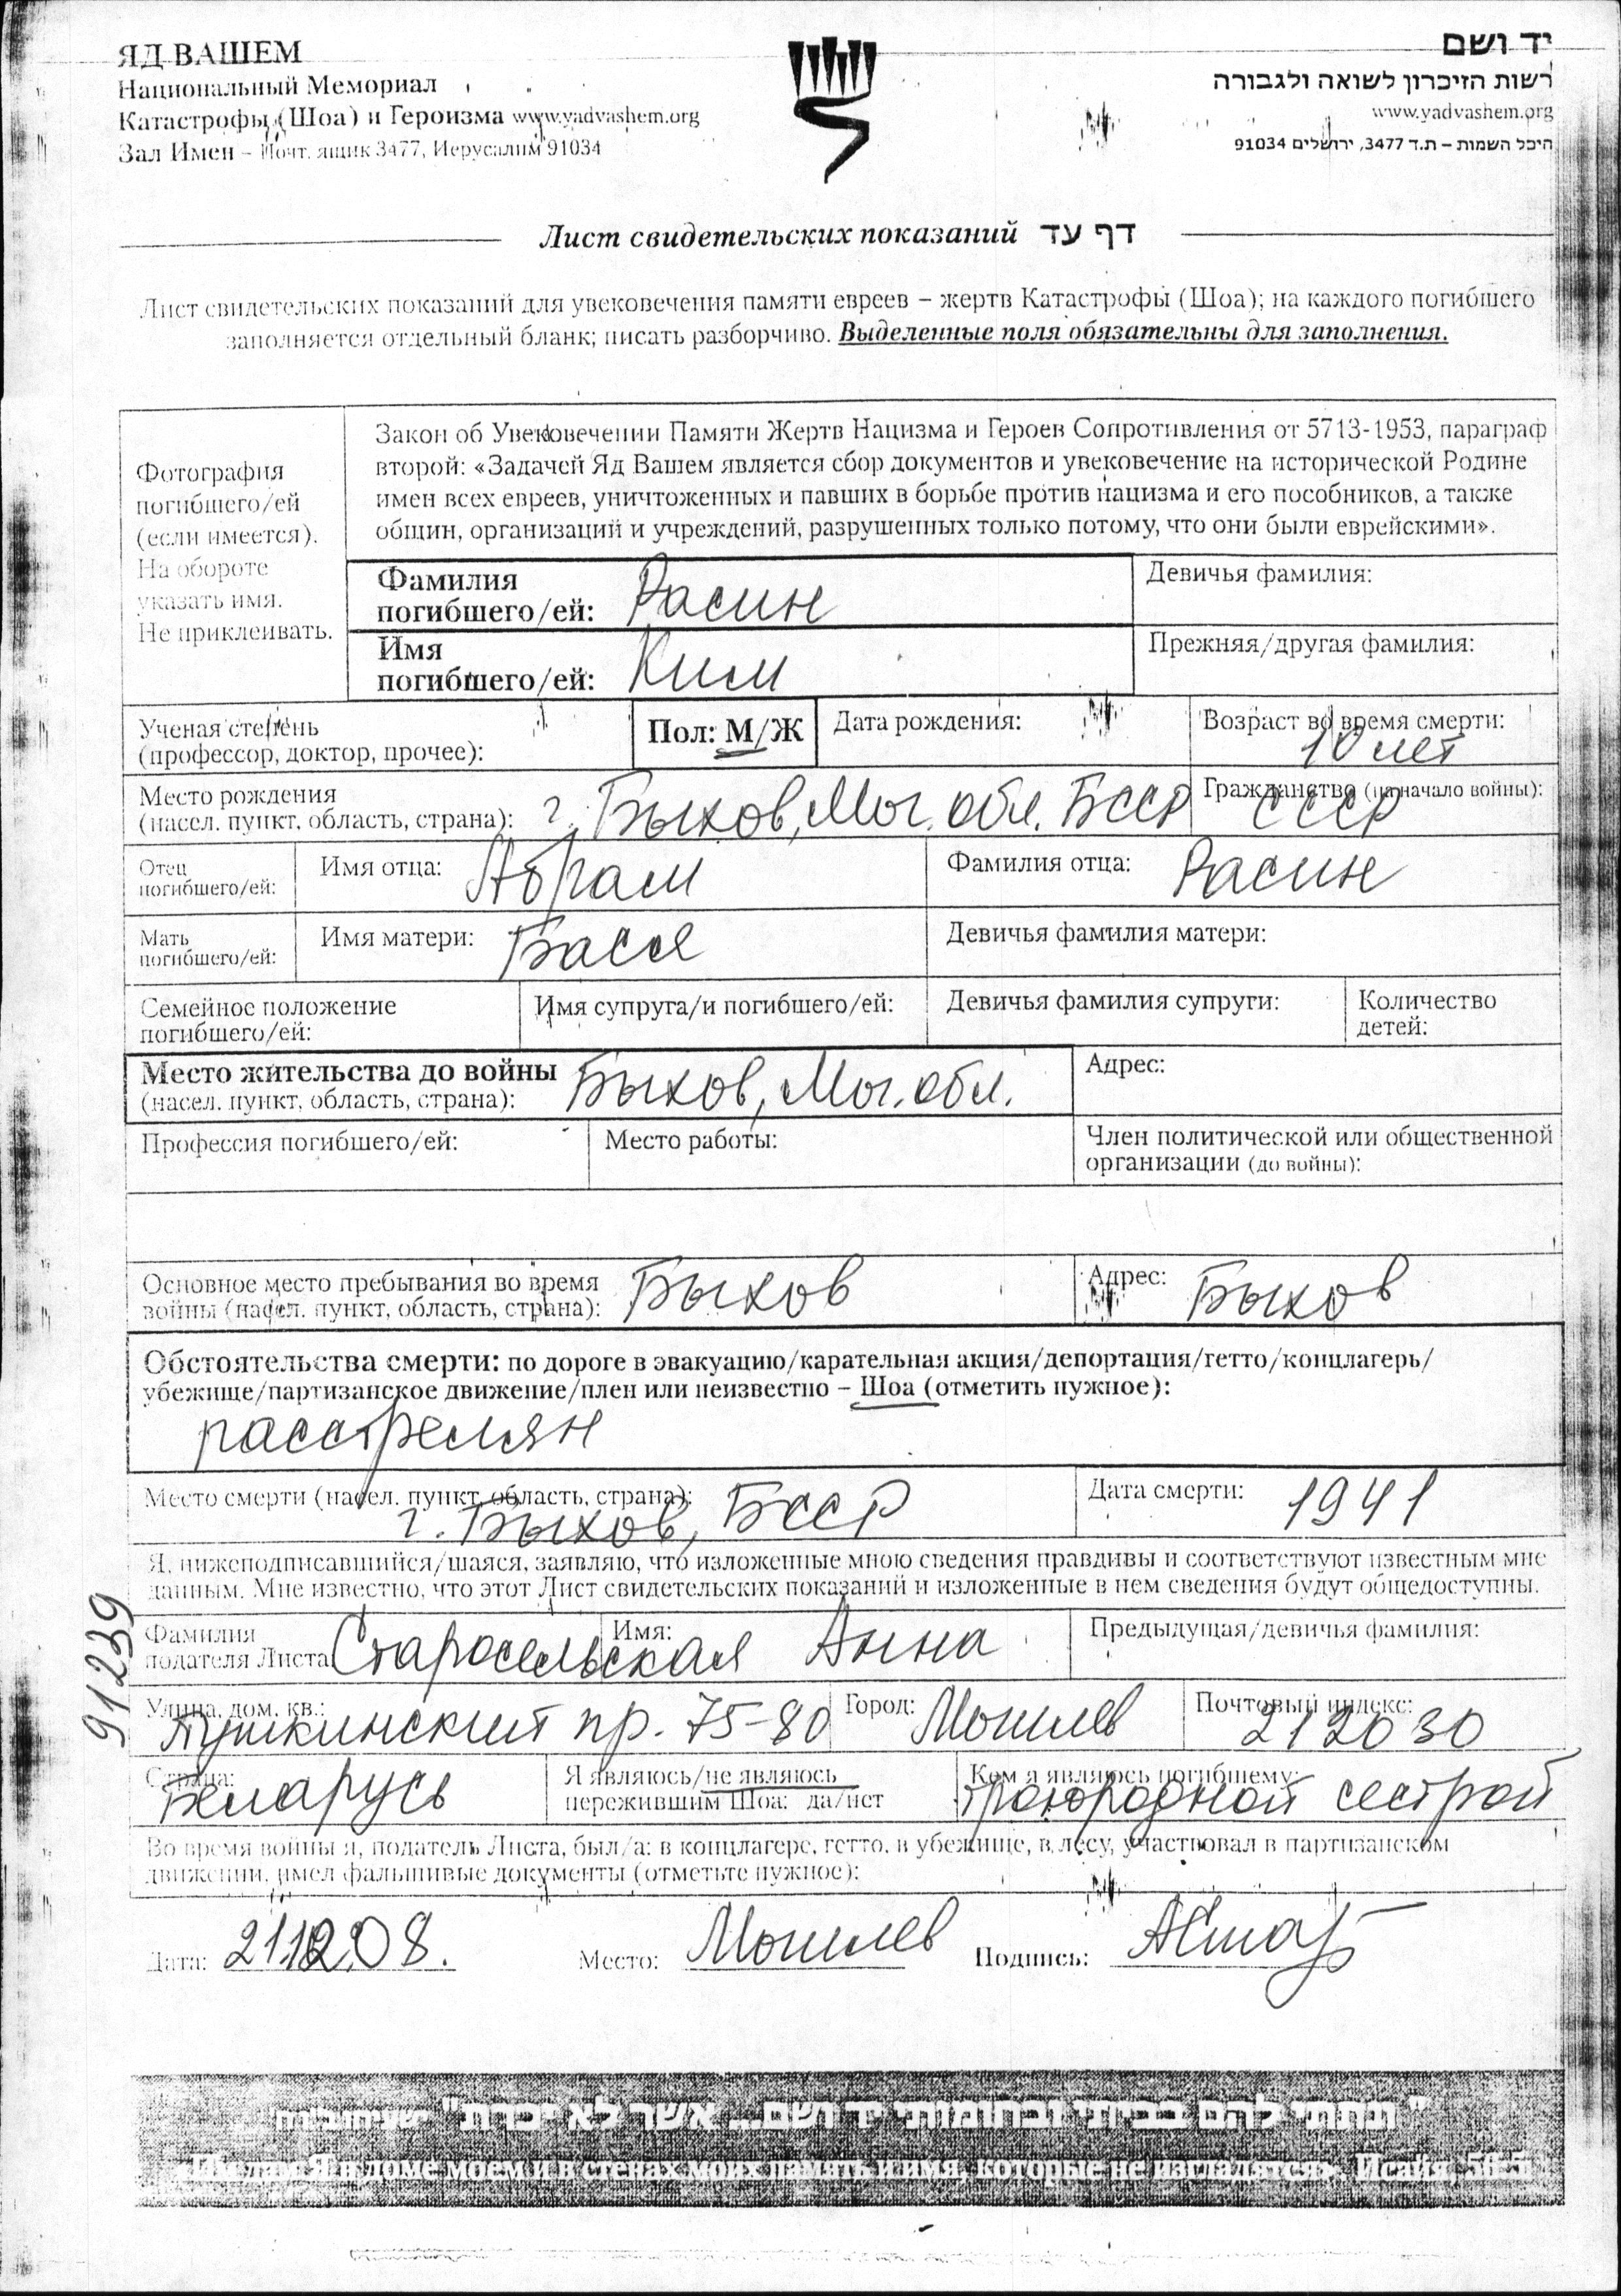 ЯД ВАШЕМ
Национальный Мемориал
Катастрофы (Шоа) и Героизма www.yadvashem.org
Зал Имен – Почт. ящик 3477, Иерусалим 91034
יד ושם
רשות הזיכרון לשואה ולגבורה
www.yadvashem.org
היכל השמות – ת.ד 3477, ירושלים 91034
Лист свидетельских показаний דף עד
Лист свидетельских показаний для увековечения памяти евреев – жертв Катастрофы (Шоа); на каждого погибшего
заполняется отдельный бланк; писать разборчиво. Выделенные поля обязательны для заполнения.
Фотография
погибшего/ей
(если имеется).
На обороте
указать имя.
Не приклеивать.
Закон об Увековечении Памяти Жертв Нацизма и Героев Сопротивления от 5713-1953, параграф
второй: «Задачей Яд Вашем является сбор документов и увековечение на исторической Родине
имен всех евреев, уничтоженных и павших в борьбе против нацизма и его пособников, а также
общин, организаций и учреждений, разрушенных только потому, что они были еврейскими».
Фамилия
погибшего/ей: Расин
Девичья фамилия:
Имя
погибшего/ей: Ким
Прежняя/другая фамилия:
Ученая степень
(профессор, доктор, прочее):
Пол: М/Ж
Дата рождения:
Возраст во время смерти:
10 лет
Место рождения
(насел. пункт, область, страна): г. Быхов, Мог. обл. БССР
Гражданство (на начало войны):
СССР
Отец
погибшего/ей:
Имя отца: Абрам
Фамилия отца: Расин
Мать
погибшего/ей:
Имя матери: Бася
Девичья фамилия матери:
Семейное положение
погибшего/ей:
Имя супруга/и погибшего/ей:
Девичья фамилия супруги:
Количество
детей:
Место жительства до войны
(насел. пункт, область, страна): Быхов, Мог. обл.
Адрес:
Профессия погибшего/ей:
Место работы:
Член политической или общественной
организации (до войны):
Основное место пребывания во время
войны (насел. пункт, область, страна): Быхов
Адрес: Быхов
Обстоятельства смерти: по дороге в эвакуацию/карательная акция/депортация/гетто/концлагерь/
убежище/партизанское движение/плен или неизвестно – Шоа (отметить нужное):
расстрелян
Место смерти (насел. пункт, область, страна):
г. Быхов, БССР
Дата смерти: 1941
Я, нижеподписавшийся/шаяся, заявляю, что изложенные мною сведения правдивы и соответствуют известным мне
данным. Мне известно, что этот Лист свидетельских показаний и изложенные в нем сведения будут общедоступны.
91239
Фамилия
подателя Листа Старосельская
Имя: Анна
Предыдущая/девичья фамилия:
Улица, дом, кв.:
Пушкинский пр. 75-80
Город: Могилев
Почтовый индекс:
212030
Страна:
Беларусь
Я являюсь/не являюсь
пережившим Шоа: да/нет
Кем я являюсь погибшему:
троюродной сестрой
Во время войны я, податель Листа, был/а: в концлагере, гетто, в убежище, в лесу, участвовал в партизанском
движении, имел фальшивые документы (отметьте нужное):
Дата: 21.12.08.
Место: Могилев
Подпись:
"ונתתי להם בביתי ובחומותי יד ושם... אשר לא יכרת" ישעיהו נו ה